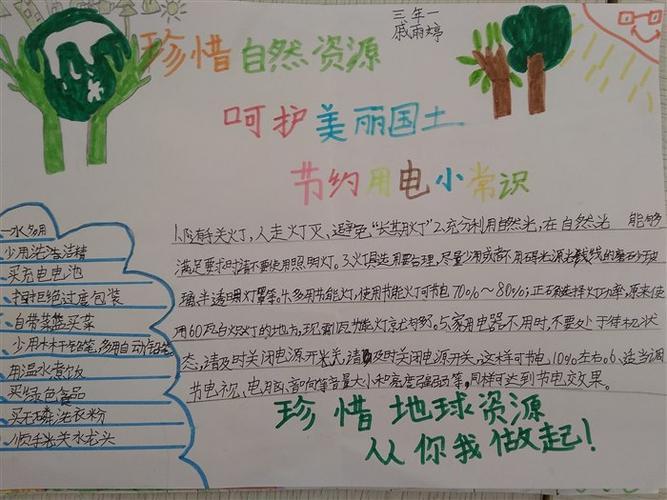 三年一
戚雨婷
珍惜自然资源
呵护美丽国土
节约用电小常识
一水多用
少用洗洁精
买充电电池
拒绝过度包装
自带菜篮买菜
少用木杆铅笔,多用自动铅笔
用温水煮饭
买绿色食品
买无磷洗衣粉
顺手关水龙头
1.随手关灯,人走灯灭,避免“长明灯”2.充分利用自然光,在自然光 能够
满足要求时请不要使用照明灯。3.灯具选用要合理,尽量少用或不用
璃、半透明灯罩等。4.多用节能灯,使用节能灯可节电70%~80%;正确选择灯功率,原来使
用60瓦白炽灯的地方,现 瓦节能灯就 够。5.家用电器不用时,不要处于待机状
态,请及时关闭电源开关,请及时关闭电源开关,这样可节电10%左右。6.适当调
节电视、电脑、音响等音量大小和亮度强弱等,同样可达到节电效果。
珍惜地球资源
从你我做起!